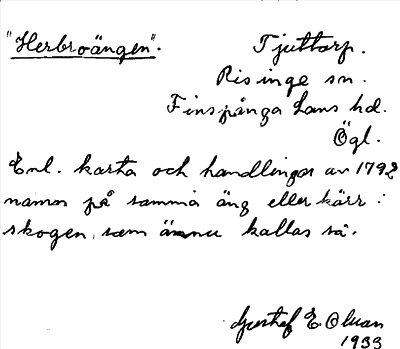 "Herbroängen".
Tjuttorp.
Risinge sn.
Finspånga Läns hd.
Ögl.
Enl. karta och handlingar av 1792
namn på samma äng eller kärr i
skogen, som ännu kallas så.
Gustaf E. Olsson
1933